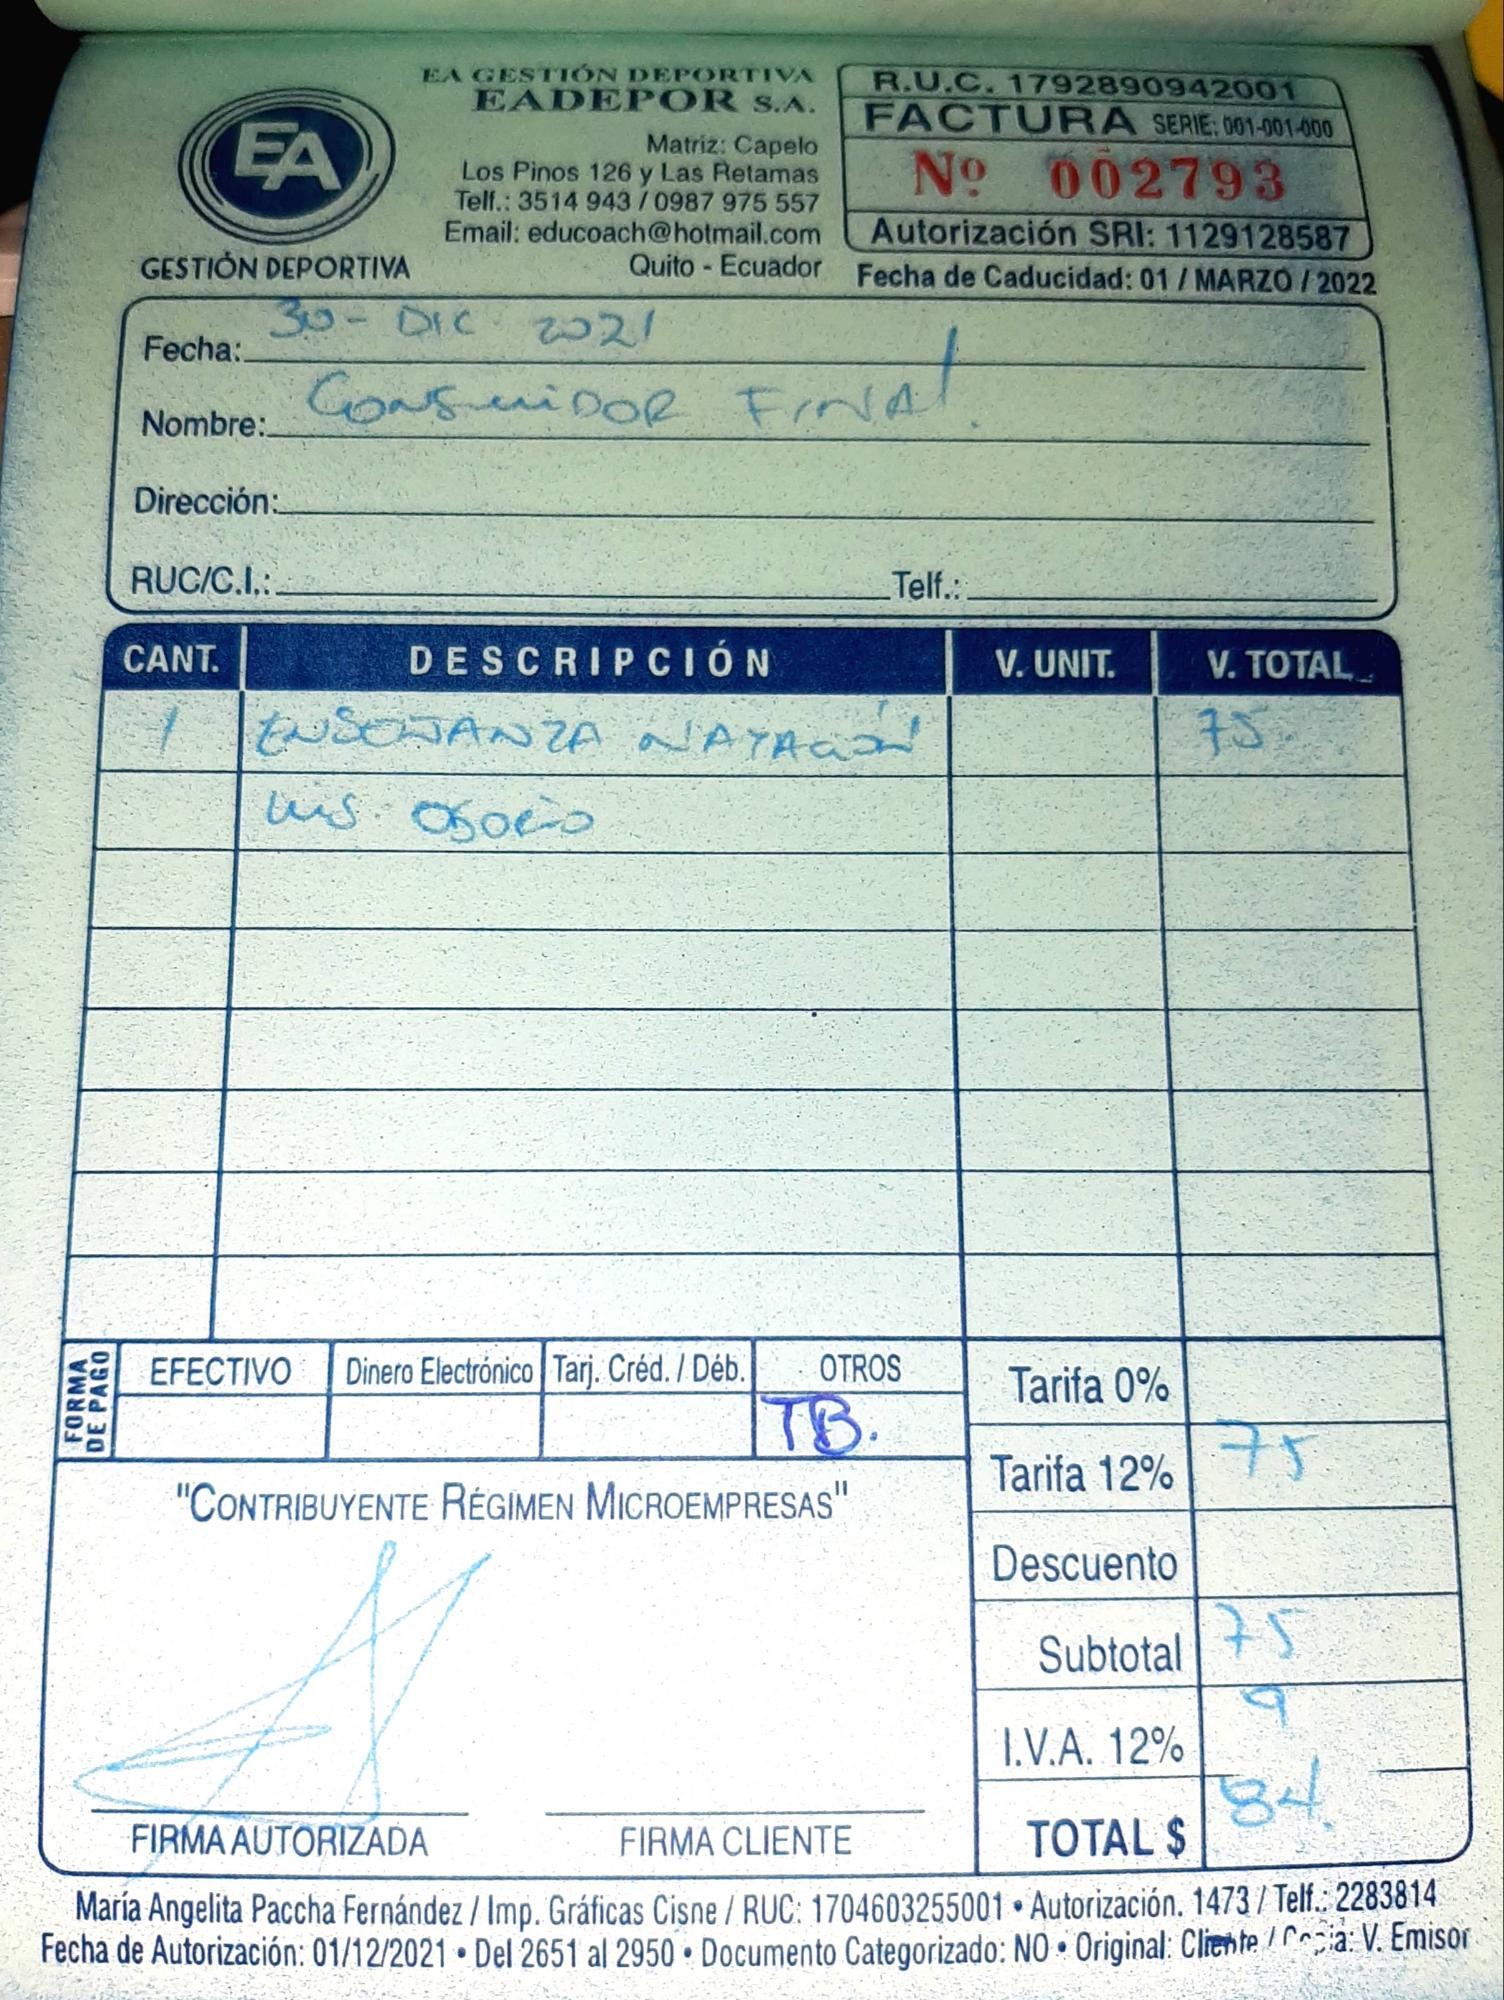 EA GESTIÓN DEPORTIVA
EADEPOR S.A.
Matriz: Capelo
Los Pinos 126 y Las Retamas
Telf.: 3514 943 / 0987 975 557
Email: educoach@hotmail.com
Quito - Ecuador
EA
GESTIÓN DEPORTIVA
R.U.C. 1792890942001
FACTURA SERIE: 001-001-000
Nº 002793
Autorización SRI: 1129128587
Fecha de Caducidad: 01 / MARZO / 2022
Fecha: 30 - DIC 2021
Nombre: CONSUMIDOR FINAL.
Dirección:
RUC/C.I.: Telf.:
CANT. DESCRIPCIÓN V. UNIT. V. TOTAL
1 ENSEÑANZA NATACIÓN 75.
LUIS OSORIO
FORMA DE PAGO
EFECTIVO Dinero Electrónico Tarj. Créd. / Déb. OTROS
TB.
Tarifa 0%
Tarifa 12% 75
Descuento
Subtotal 75
I.V.A. 12% 9
TOTAL $ 84.
"CONTRIBUYENTE RÉGIMEN MICROEMPRESAS"
FIRMA AUTORIZADA FIRMA CLIENTE
María Angelita Paccha Fernández / Imp. Gráficas Cisne / RUC: 1704603255001 • Autorización. 1473 / Telf.: 2283814
Fecha de Autorización: 01/12/2021 • Del 2651 al 2950 • Documento Categorizado: NO • Original: Cliente / Copia: V. Emisor